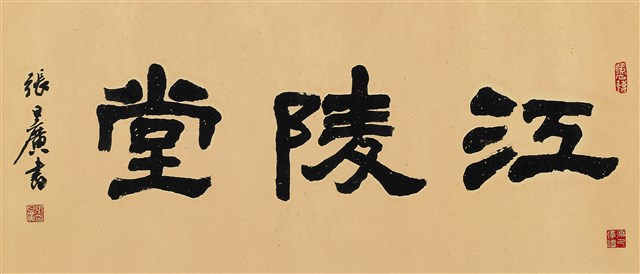 江陵堂
張日廣書